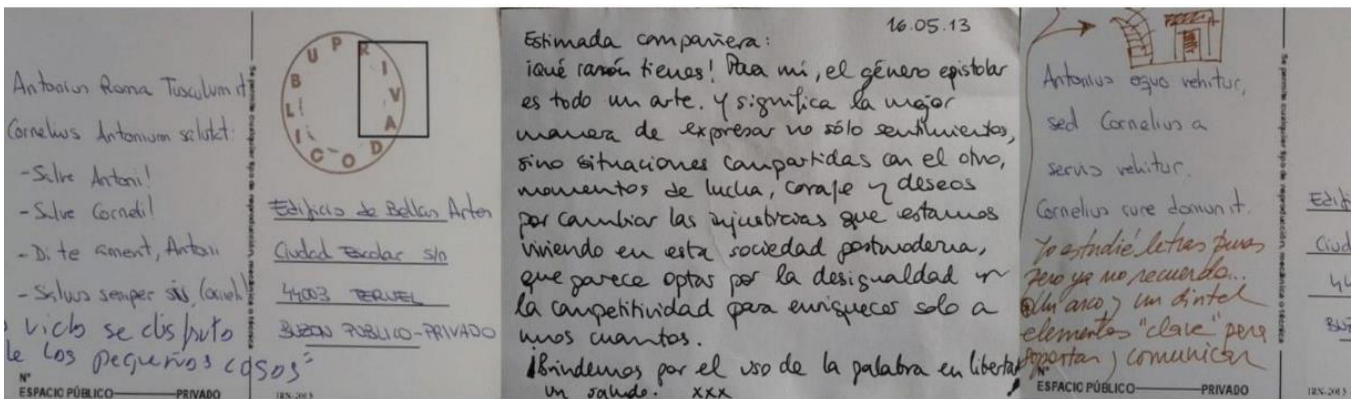 Antonius Roma Tusculum it
Cornelius Antonium salutat:
- Salve Antoni!
- Salve Corneli!
- Di te ament, Antoni
- Salvus semper sis,
vida se disfruta
de las pequeñas cosas"
Nº
ESPACIO PÚBLICO PRIVADO
Se permite cualquier tipo de reproducción, mecánica o técnica
PUBLICO PRIVADO
Edificio de Bellas Artes
Ciudad Escolar s/n
44003 TERUEL
BUZON PUBLICO-PRIVADO
IRX-2013
16.05.13
Estimada compañera:
¡Qué razón tienes! Para mí, el género epistolar
es todo un arte. Y significa la mejor
manera de expresar no sólo sentimientos,
sino situaciones compartidas con el otro,
momentos de lucha, coraje y deseos
por cambiar las injusticias que estamos
viviendo en esta sociedad postmoderna,
que parece optar por la desigualdad y
la competitividad para enriquecer solo a
unos cuantos.
¡Brindemos por el uso de la palabra en libertad!
Un saludo. xxx
Antonius equo vehitur,
sed Cornelius a
servis vehitur.
Cornelius cure domum it.
Yo estudié letras puras
pero ya no recuerdo...
Un arco y un dintel
elementos "clave" para
soportar y comunicar
Nº
ESPACIO PÚBLICO PRIVADO
Se permite cualquier tipo de reproducción, mecánica o técnica
Edif
Ciud
44
BUZ
IRX-2013